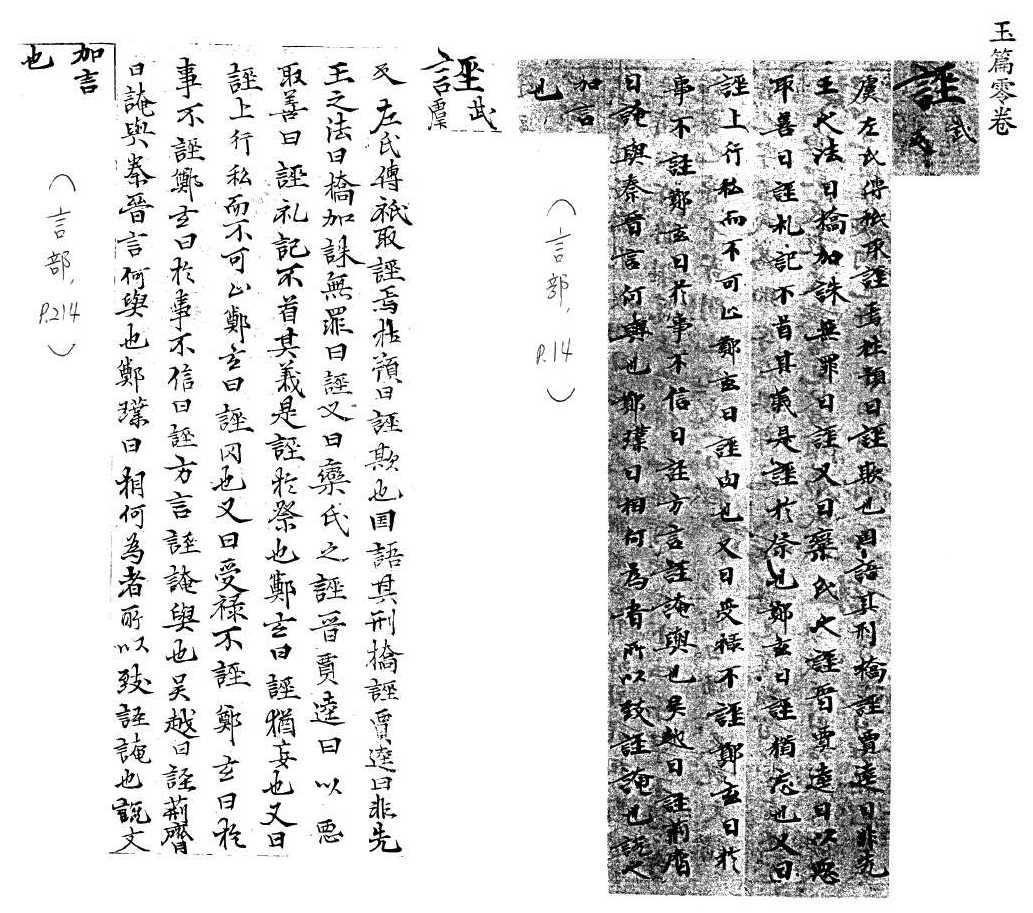 玉篇零卷
誣 武
虞 左氏傳祇取誣焉杜預曰誣欺也囯語其刑橋誣賈逵曰非先
王之法曰橋加誅無罪曰誣又曰欒氏之誣晉賈逵曰以惡
取善曰誣礼記不首其義是誣於祭也鄭玄曰誣猶妄也又曰
誣上行私而不可止鄭玄曰誣罔也又曰受禄不誣鄭玄曰於
事不誣鄭玄曰於事不信曰誣方言誣䛳與也吴越曰誣荊齊
曰䛳與秦晉言何與也鄭璞曰相何為者所以致誣䛳也説文
加言
也
(言部, P.14)
誣 武
虞
反 左氏傳祇取誣焉杜預曰誣欺也囯語其刑橋誣賈逵曰非先
王之法曰橋加誅無罪曰誣又曰欒氏之誣晉賈逵曰以悪
取善曰誣礼記不首其義是誣於祭也鄭玄曰誣猶妄也又曰
誣上行私而不可止鄭玄曰誣罔也又曰受禄不誣鄭玄曰於
事不誣鄭玄曰於事不信曰誣方言誣䛳與也吴越曰誣荊齊
曰䛳與秦晉言何與也鄭璞曰相何為者所以致誣䛳也説文
加言
也
(言部, P.214)